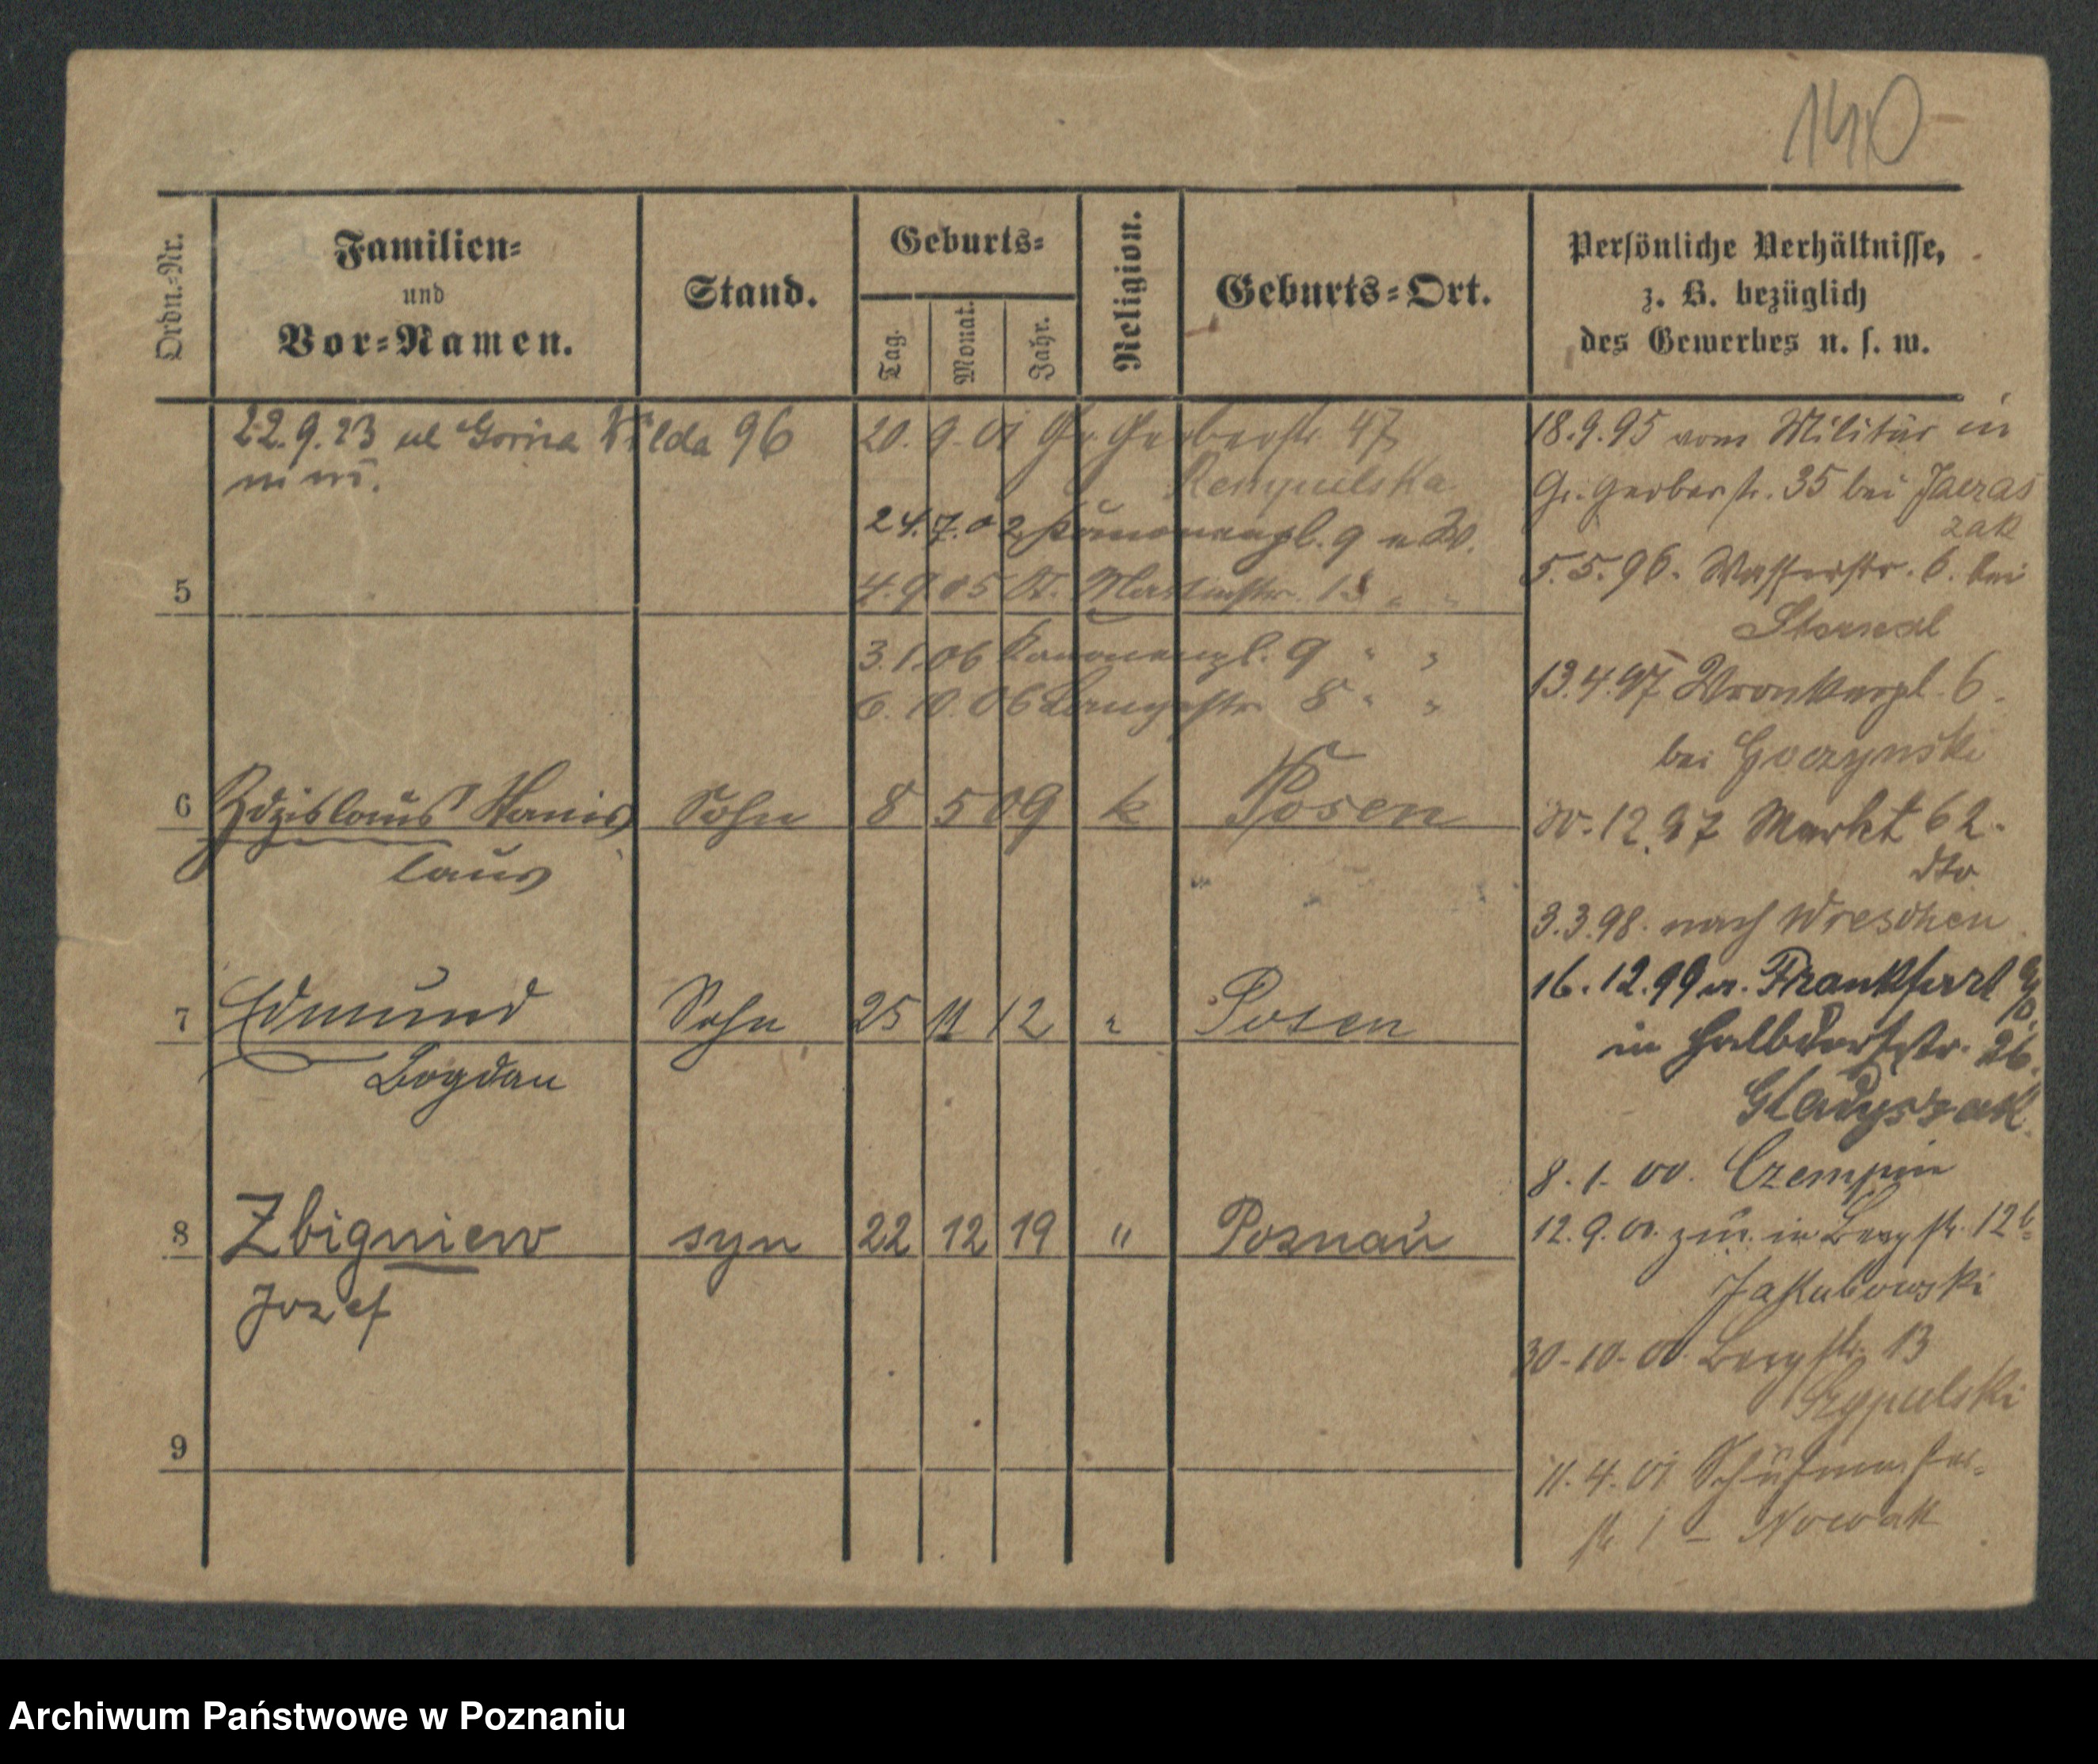 140
Ordn.-Nr.
Familien-
und
Vor-Namen.
Stand.
Geburts-
Tag.
Monat.
Jahr.
Religion.
Geburts-Ort.
Persönliche Verhältnisse,
z. B. bezüglich
des Gewerbes u. s. w.
22.9.23 ul Gorna Wilda 96
20.9.01 Gr. Gerberstr. 47
24.7.02 Kanonenpl. 9 u W.
5
4.9.05 St. Martinstr. 13 " "
3.1.06 Kanonenpl. 9 " "
6.10.06 Langestr. 8 " "
6 Zdzislaus Stanis Sohn 8 5 09 k Posen
laus
7 Edmund Sohn 25 11 12 " Posen
Bogdan
8 Zbigniew syn 22 12 19 " Poznań
Jozef
9
18.9.95 vom Militär in
Gr. Gerberstr. 35 bei Jaeras
zak
5.5.96. Wasserstr. 6. bei
13.4.97 Wronkerpl. 6.
bei Goczynski
12.97 Markt 62.
dto
3.3.98. nach Wreschen
16.12.99 v. Frankfurt a/O.
in Halbdorfstr. 26.
Gladyszak.
8.1.00. Czempin
12.9.00. zur. in Bergstr. 12b
Jakubowski
30-10-00 Bergstr. 13
Szypulski
11.4.01 Schützen
str. 1 - Nowak
Archiwum Państwowe w Poznaniu